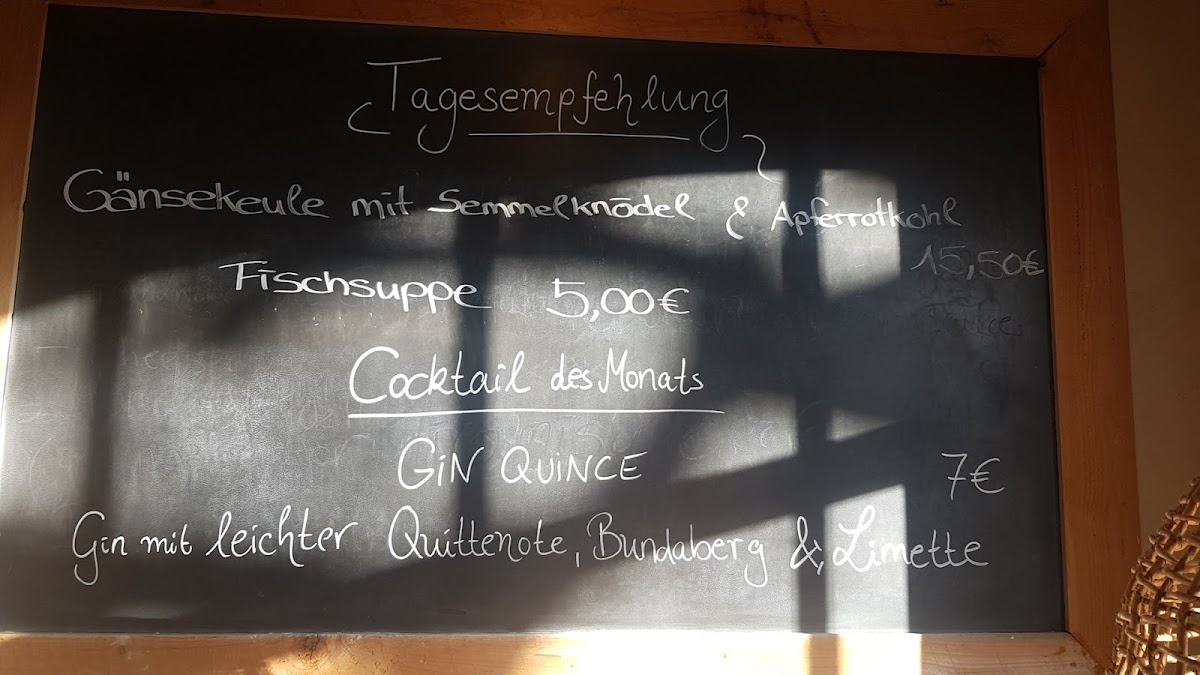 Tagesempfehlung
Gänsekeule mit Semmelknödel & Apferrotkohl
15,50€
Fischsuppe 5,00€
Cocktail des Monats
GIN QUINCE 7€
Gin mit leichter Quittenote, Bundaberg & Limette